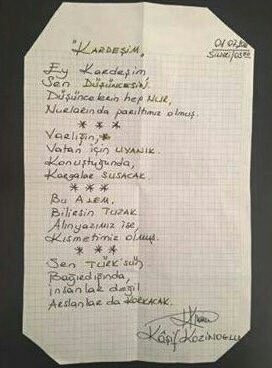 "KARDEŞİM"
Ey Kardeşim
Sen DÜŞÜNCESİN,
Düşüncelerin hep NUR,
Nurlarında parıltımız olmuş.
***
Varlığın,
Vatan için UYANIK.
Konuştuğunda,
Kargalar SUSACAK.
***
Bu ALEM,
Bilirsin TUZAK.
Alınyazımız ise,
Kısmetimiz olmuş.
***
Sen TÜRK'sün
Bağırdığında,
İnsanlar değil
Arslanlar da KORKACAK.
Kâşif KOZİNOĞLU